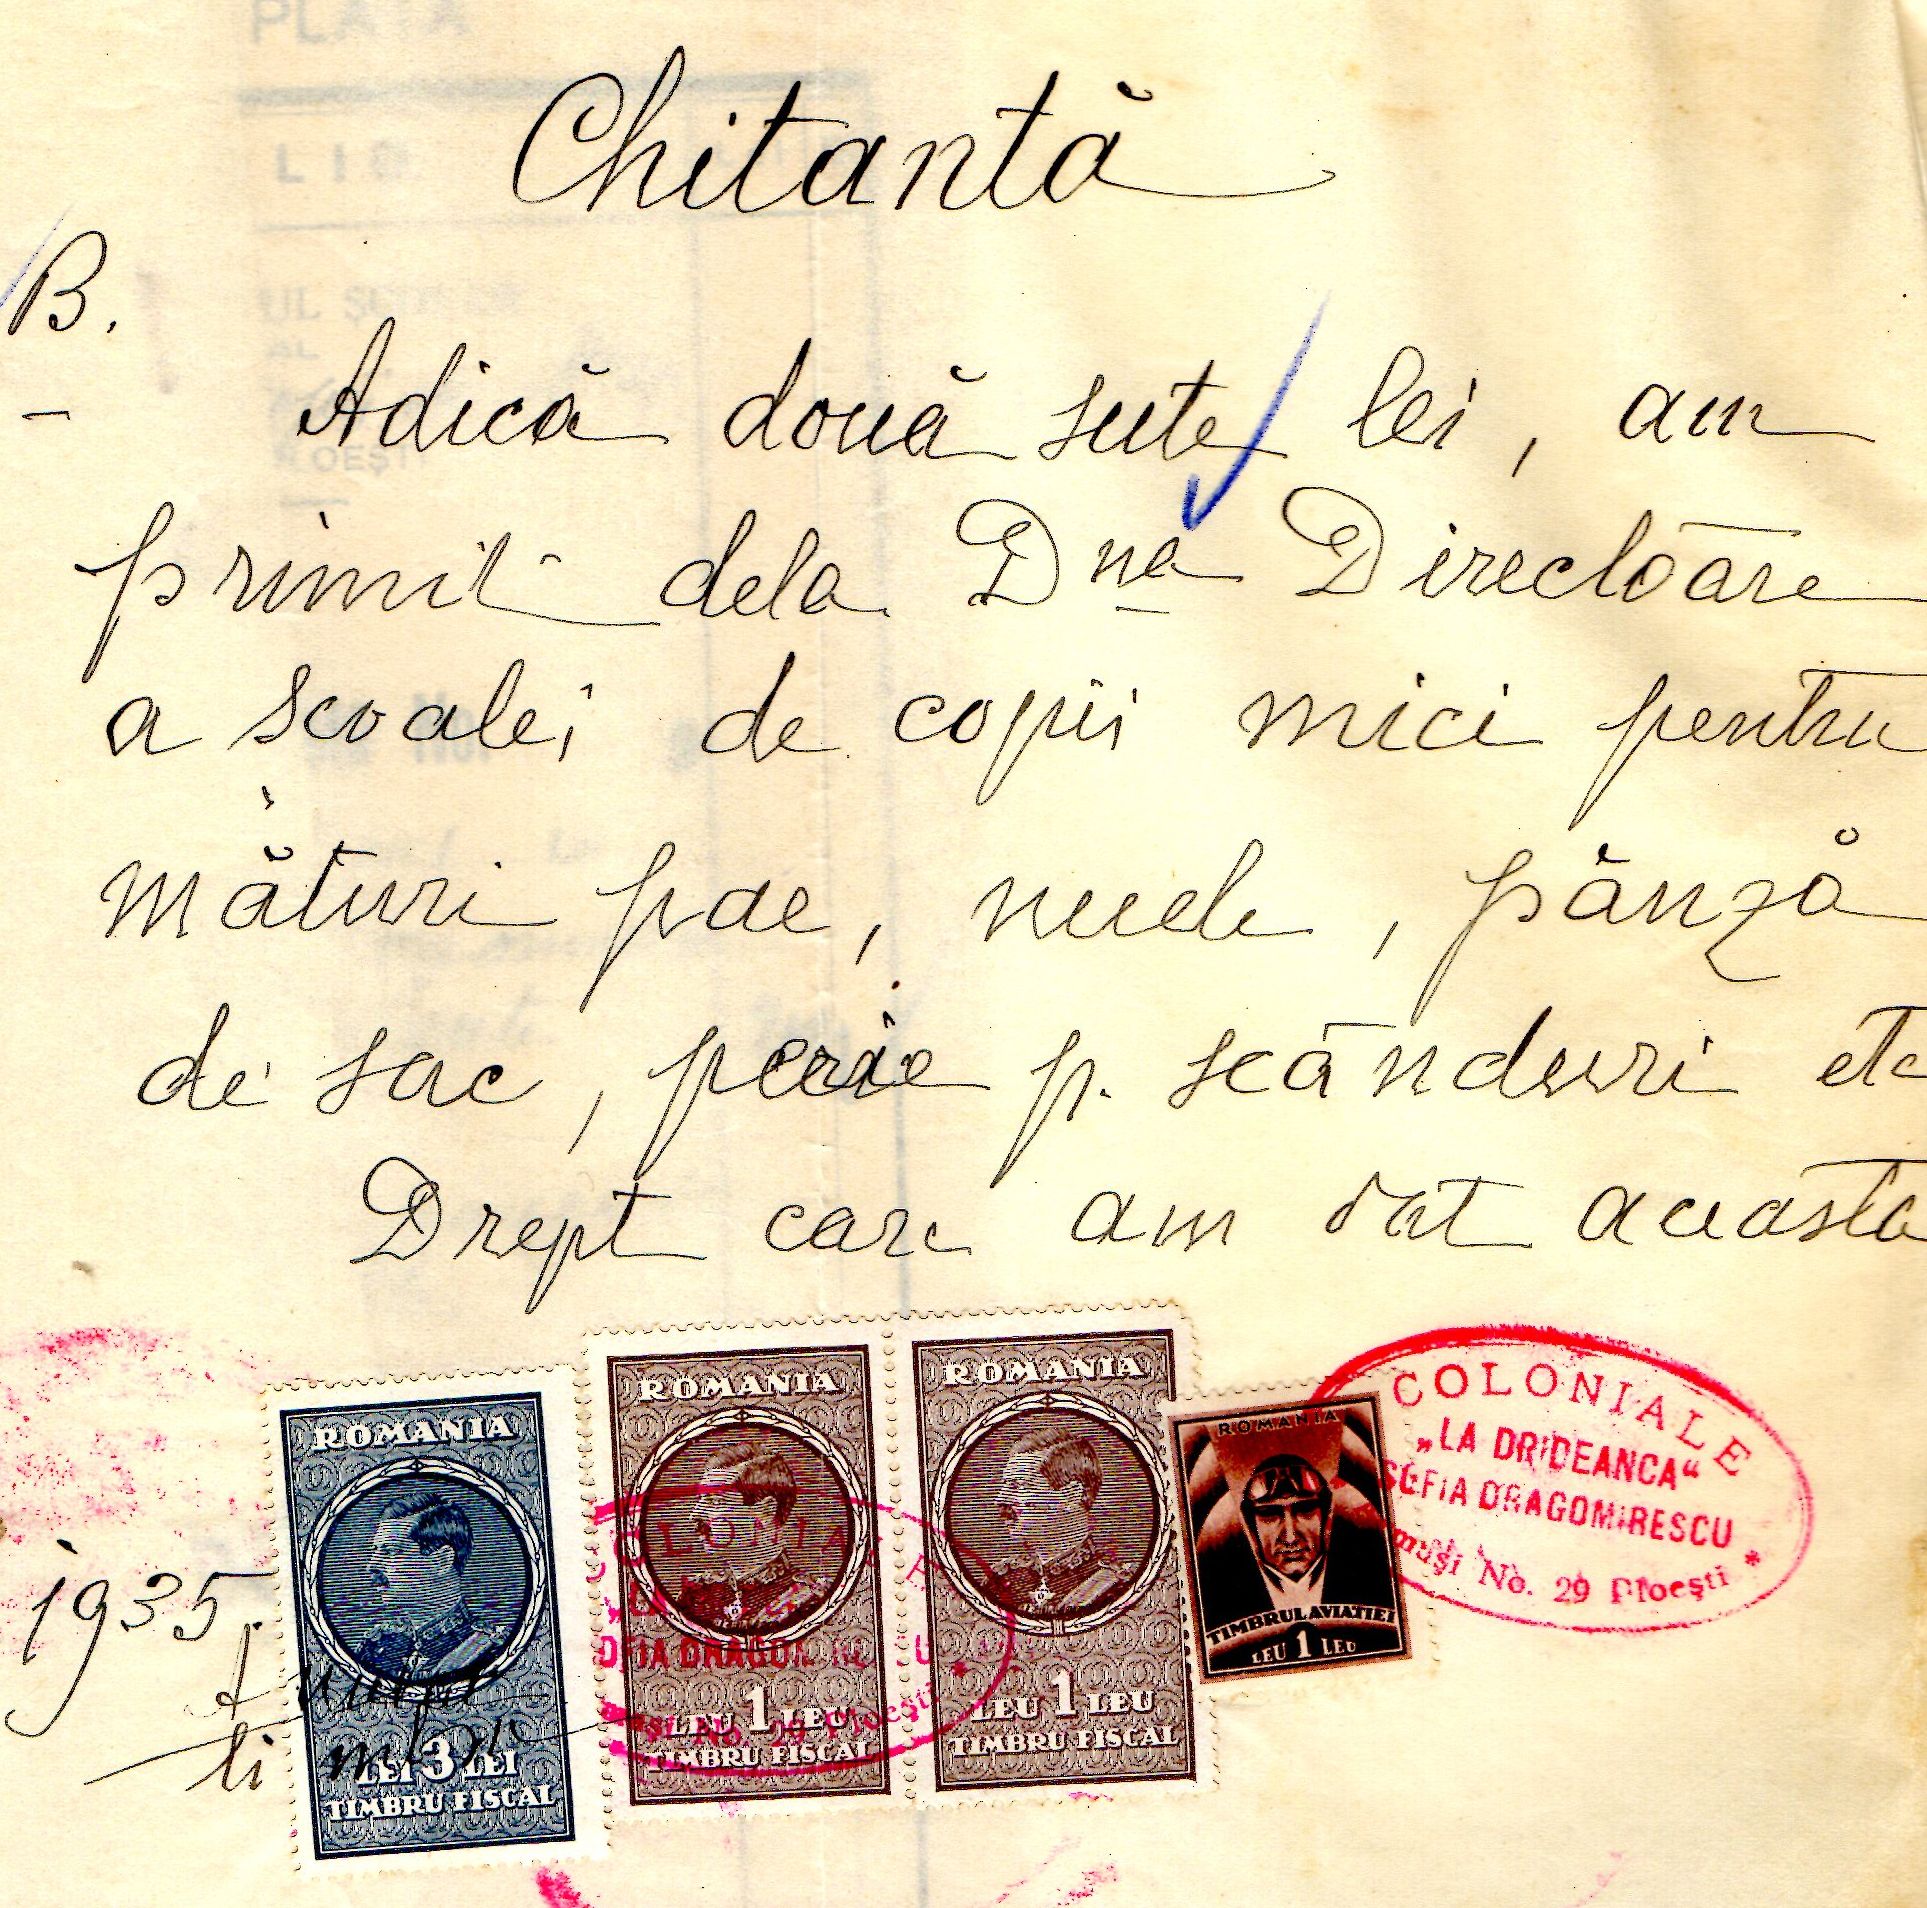 PLATA
Chitantă
B.
Adică două sute lei, am
primit dela Dna Directoare
a scoalei de copii mici pentru
mături pae, nuele, pânză
de sac, perie p. scânduri etc
Drept care am dat aceasta
1935.
ROMANIA
LEI 3 LEI
TIMBRU FISCAL
ROMANIA
LEU 1 LEU
TIMBRU FISCAL
ROMANIA
LEU 1 LEU
TIMBRU FISCAL
ROMANIA
TIMBRUL AVIATIEI
LEU 1 LEU
COLONIALE
„LA DRIDEANCA“
SEFIA DRAGOMIRESCU
No. 29 Ploeşti *